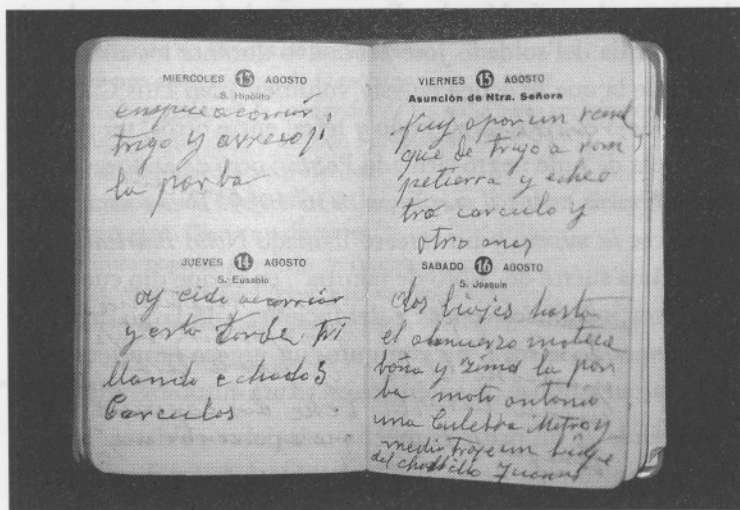 MIERCOLES 13 AGOSTO
S. Hipólito
trigo y arresoji
la parba
JUEVES 14 AGOSTO
S. Eusebio
oy
y esta tarde tri
llando echado 5
Carculos
VIERNES 15 AGOSTO
Asunción de Ntra. Señora
fuy apor un rem
que de trigo a rom
petierra y echeo
tro carculo y
otro mas
SABADO 16 AGOSTO
S. Joaquín
dos biajes hasta
el almuerzo
y la par
ba mato antonio
una Culebra Metro y
medio traje un biage
del